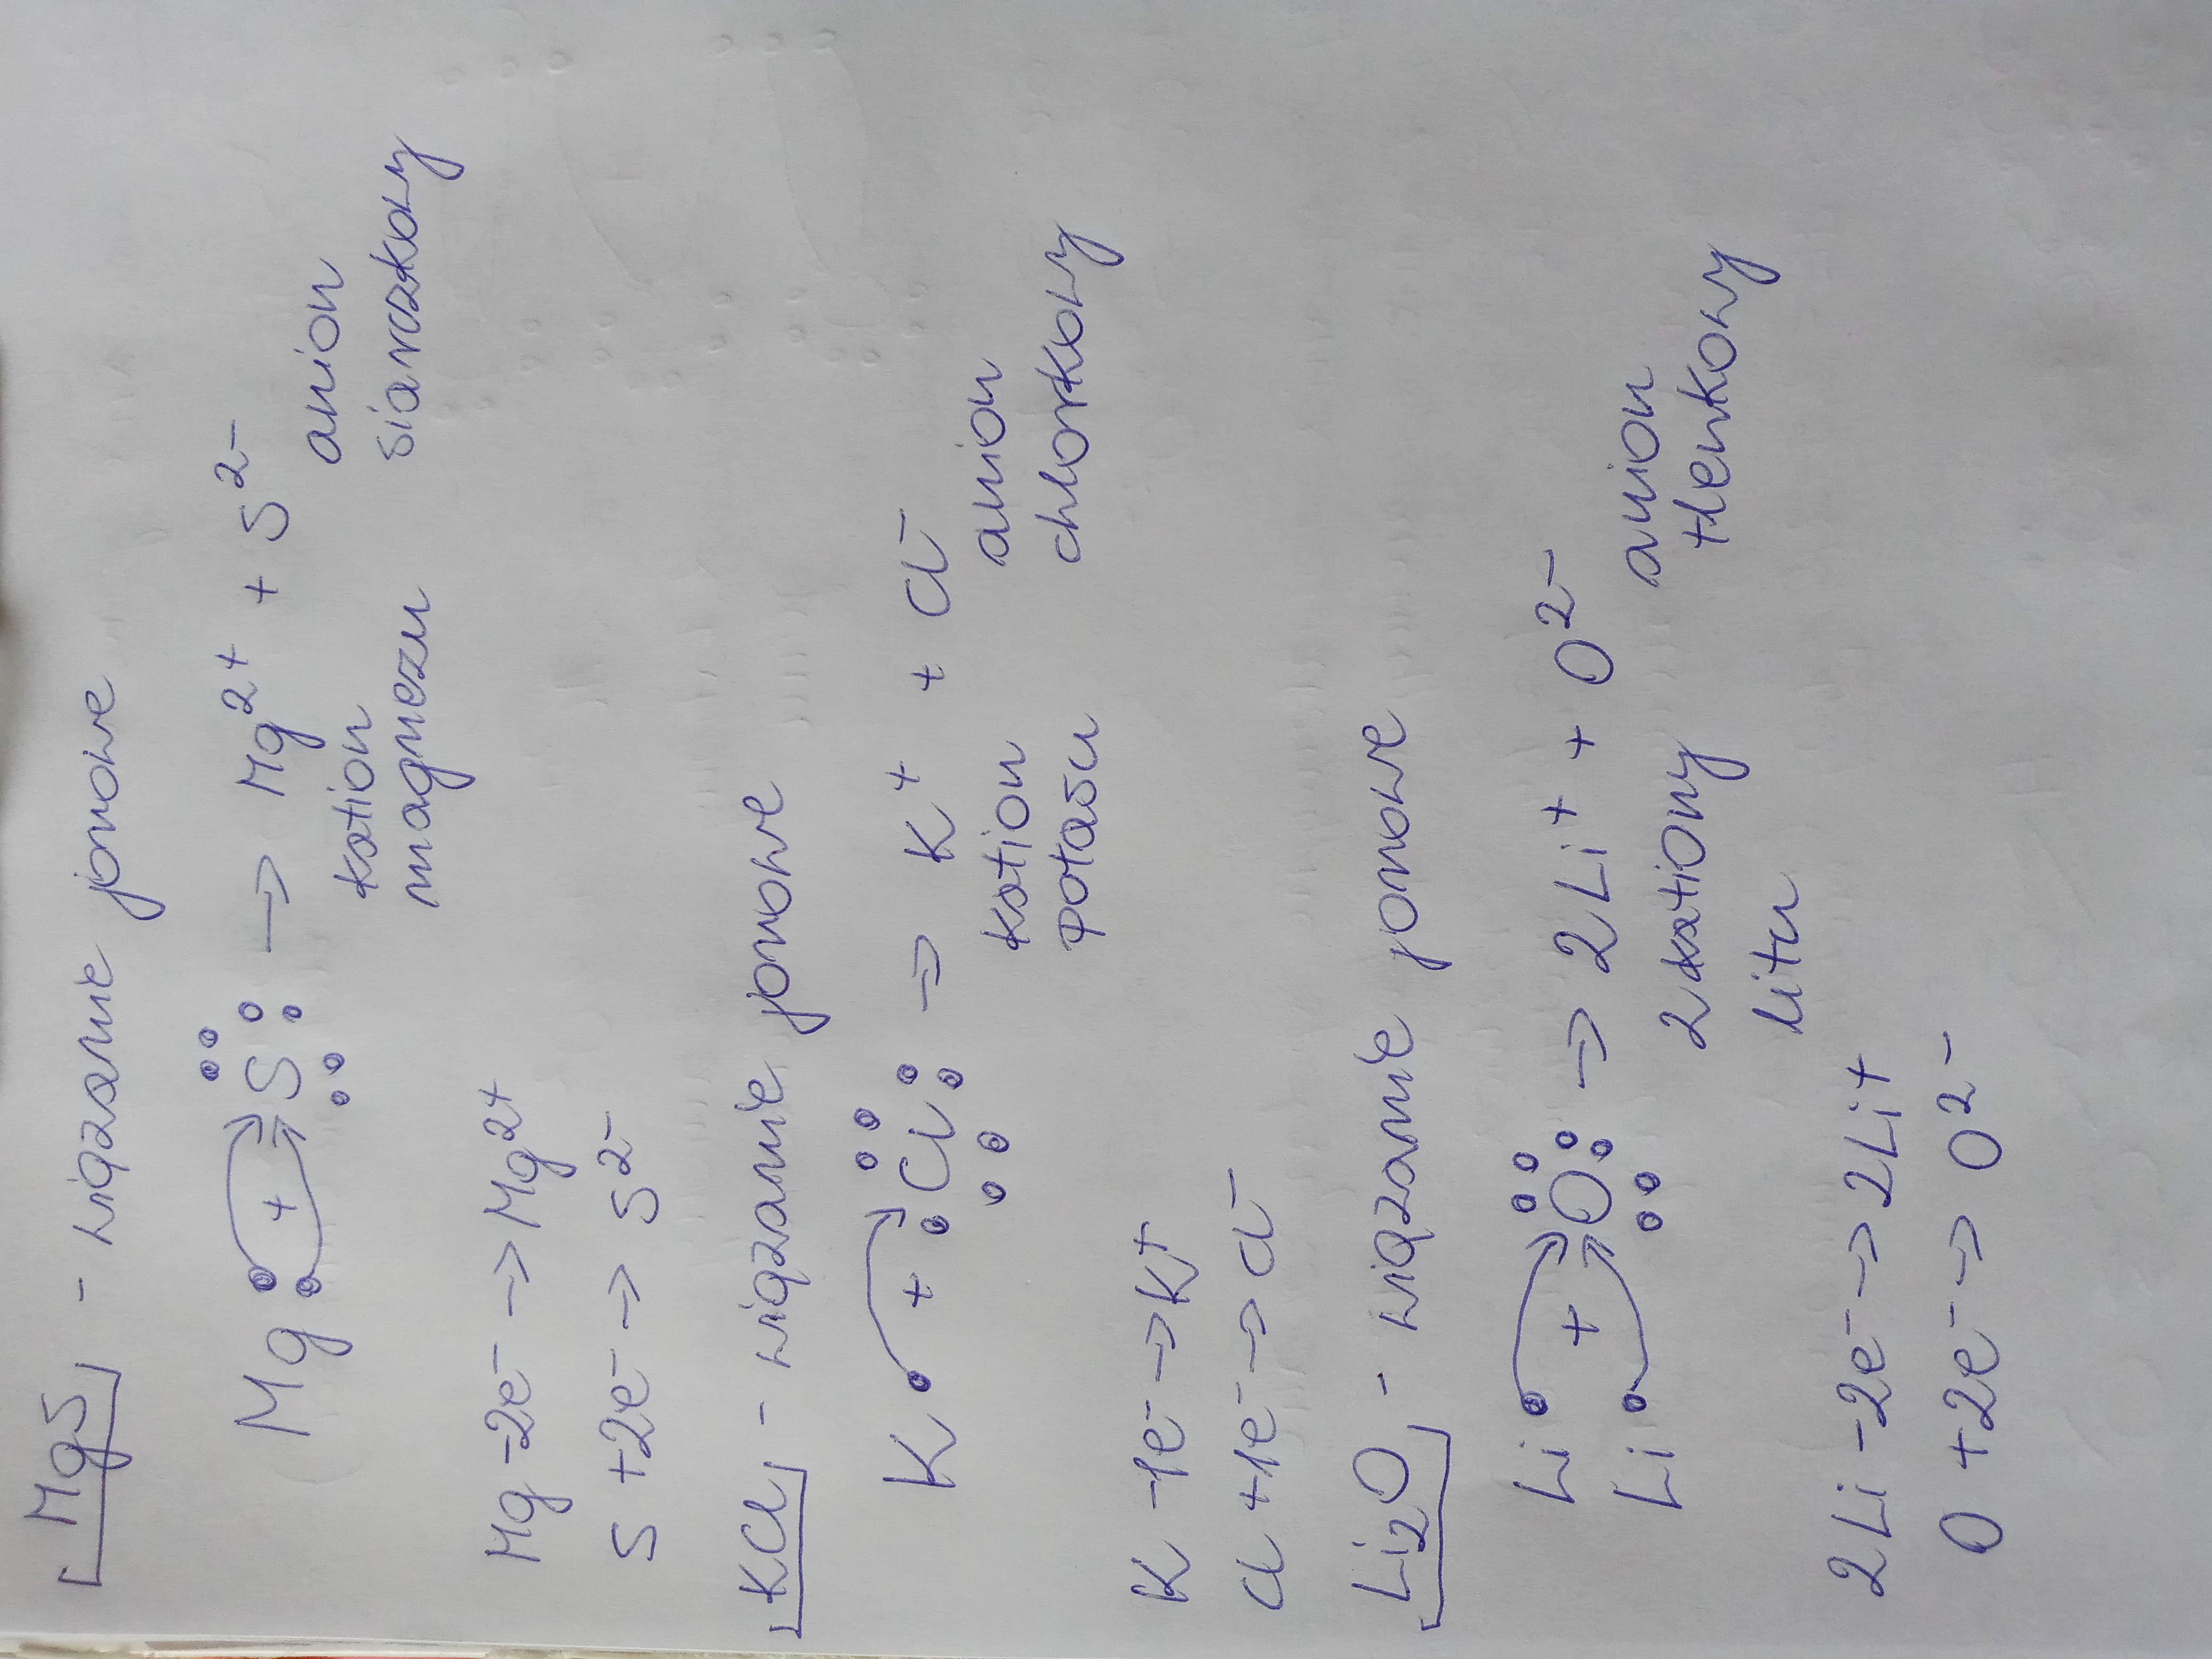 MgS - wiązanie jonowe
Mg + S → Mg²⁺ + S²⁻
kation anion
magnezu siarczkowy
Mg -2e⁻ → Mg²⁺
S +2e⁻ → S²⁻
KCl - wiązanie jonowe
K + Cl → K⁺ + Cl⁻
kation anion
potasu chlorkowy
K -1e⁻ → K⁺
Cl +1e⁻ → Cl⁻
Li₂O - wiązanie jonowe
Li + O → 2Li⁺ + O²⁻
Li
2 kationy anion
litu tlenkowy
2Li -2e⁻ → 2Li⁺
O +2e⁻ → O²⁻